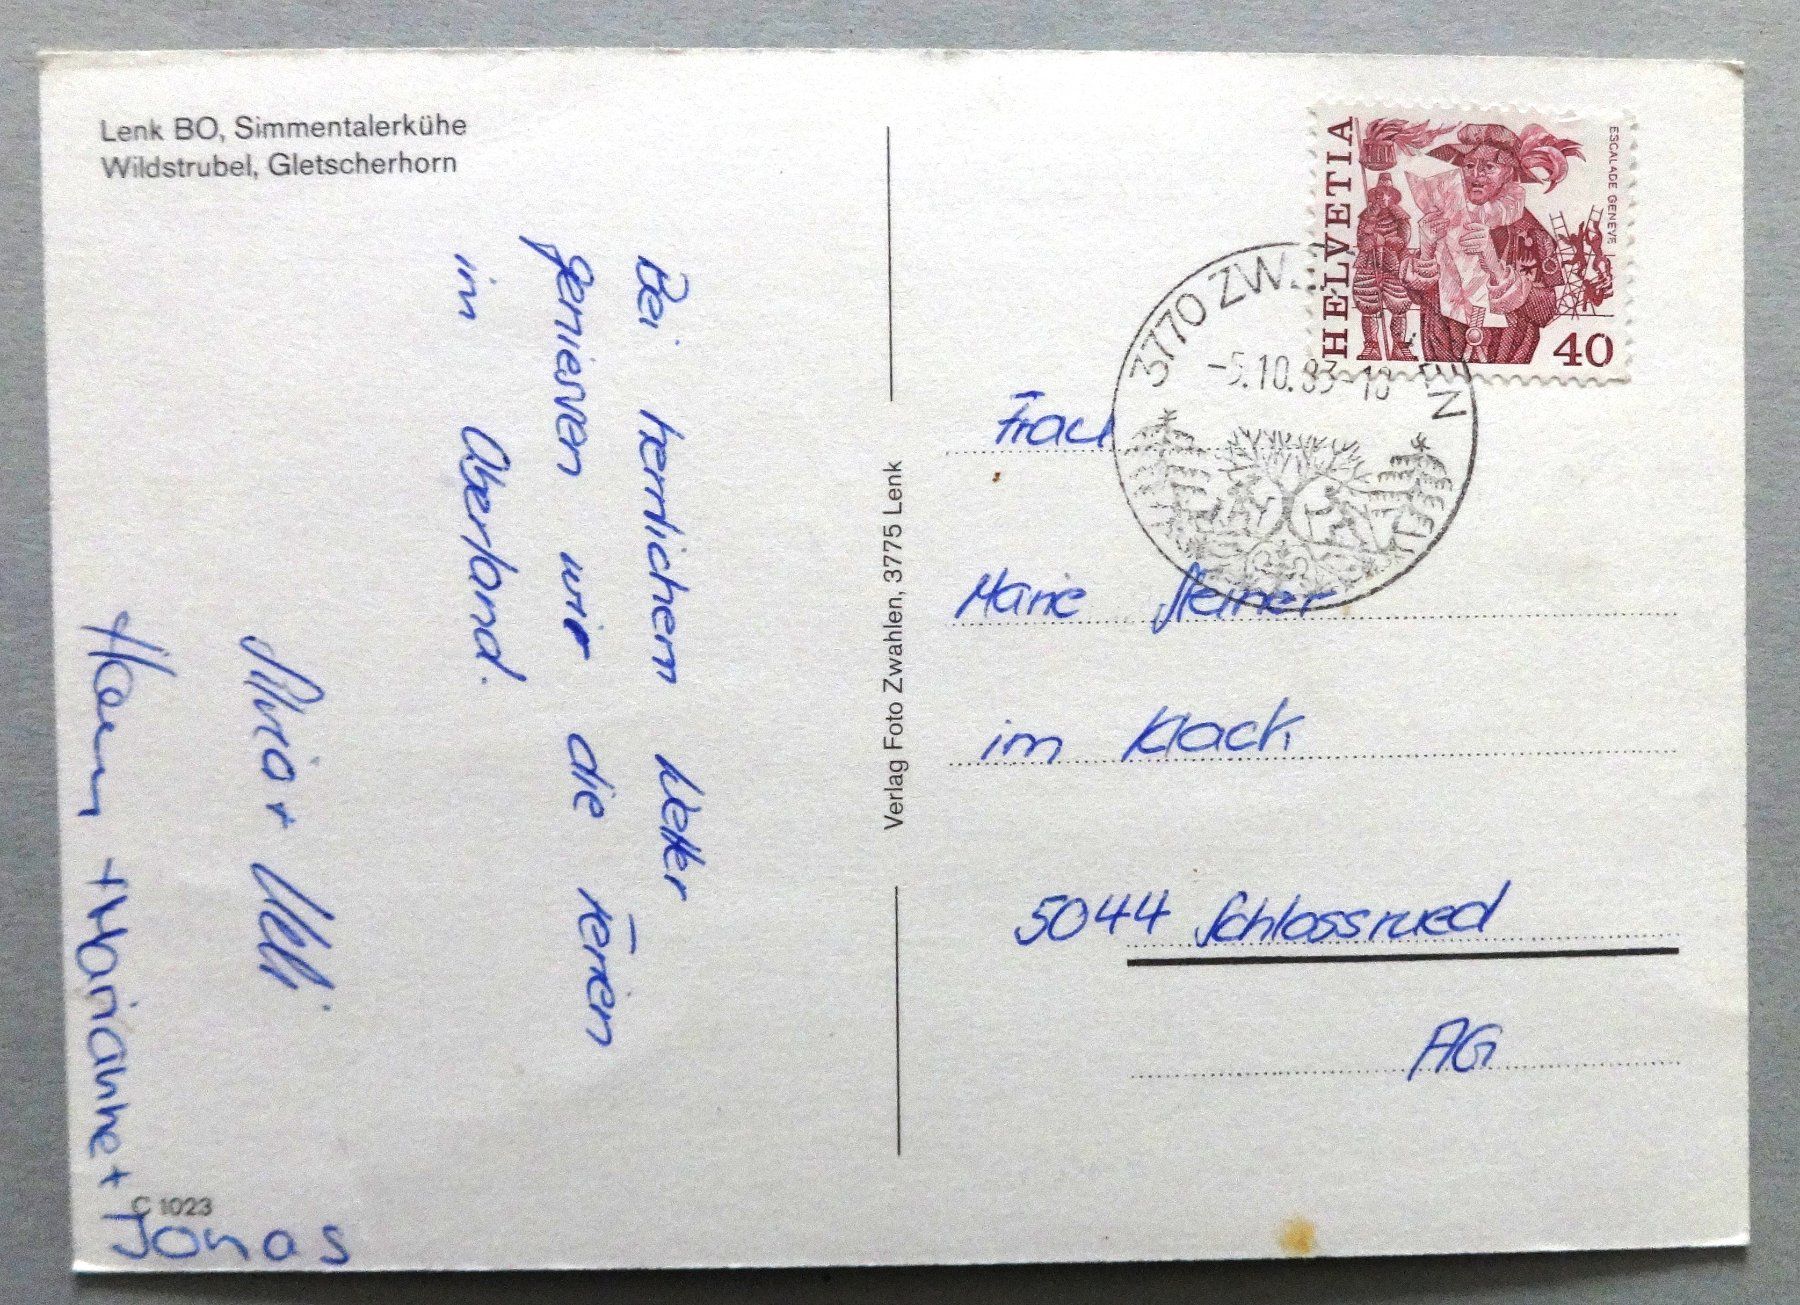 Lenk BO, Simmentalerkühe
Wildstrubel, Gletscherhorn
Bei herrlichem Wetter
geniessen wir die Ferien
im Oberland.
Silvia + Ueli
+ Marianne +
Jonas
C 1023
Verlag Foto Zwahlen, 3775 Lenk
HELVETIA
ESCALADE GENEVE
40
3770 ZW
-5.10.83-18
Frau
Marie Steiner
im Klack
5044 Schlossrued
AG